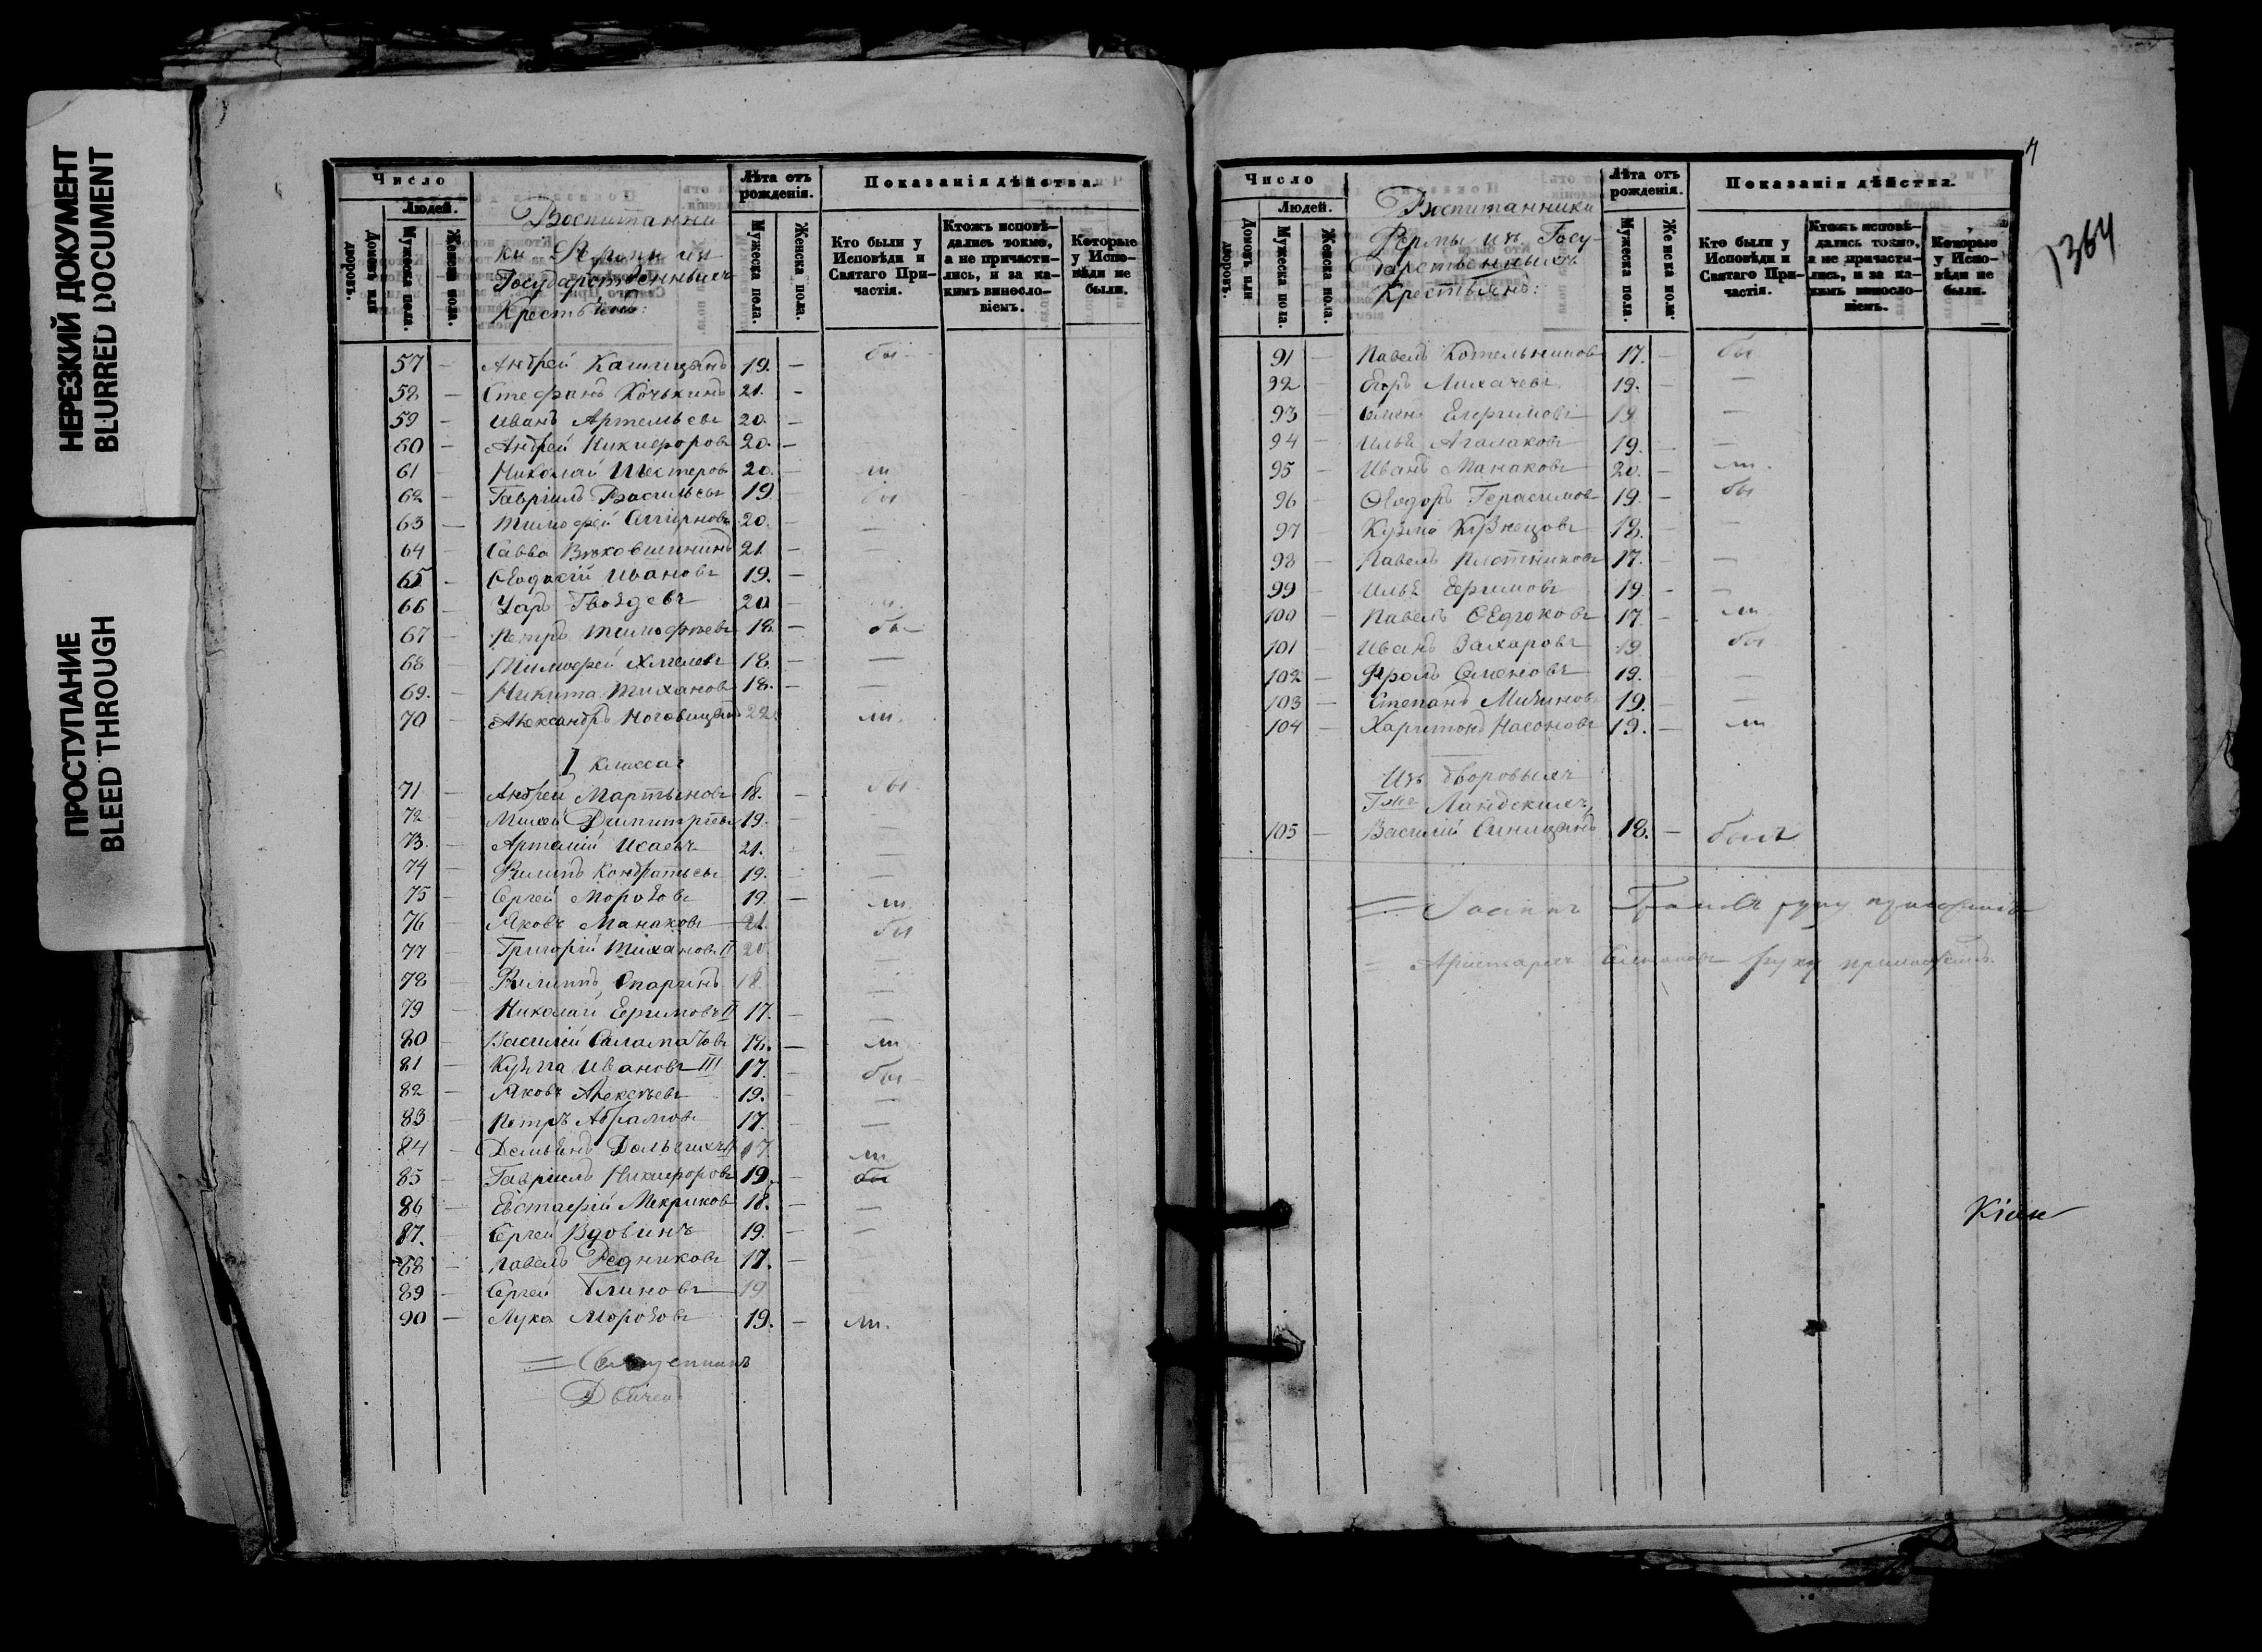 НЕРЕЗКИЙ ДОКУМЕНТ
BLURRED DOCUMENT
ПРОСТУПАНИЕ
BLEED THROUGH
Число
Людей.
Домовъ или дворовъ.
Мужеска пола.
Женска пола.
Воспитанни
ки Фермы изъ
Государственныхъ
Крестьянъ:
Лѣта отъ рожденія.
Мужеска пола.
Женска пола.
Показанія дѣйства.
Кто были у Исповѣди и Святаго Причастія.
Ктожъ исповѣдались токмо, а не причастились, и за какимъ винословіемъ.
Которые у Исповѣди не были.
57 — Андрей Кашицынъ 19. — бы
58 — Стефанъ Кочькинъ 21. -
59 — Иванъ Артемьевъ 20. —
60 — Андрей Никифоровъ 20. —
61 — Николай Шестеровъ 20. — ли
62 — Гавріилъ Васильевъ 19 — бы
63 — Тимофей Смирновъ 20. — —
64 — Савва 21. — —
65 — Ѳеодосій Ивановъ 19. —
66 — Гвоздевъ 20 —
67 — Петръ Тимофѣевъ 18 — бы
68 — Тимофей Хмелевъ 18. — —
69. — Никита Тихановъ 18. — —
70 — Александръ Ноговицынъ 22. ли.
I класса
71 — Андрей Мартыновъ 18. — бы
72 — Димитріевъ 19. — —
73. — Артемій Исаевъ 21. — —
74 — Филипъ Кондратьевъ 19. —
75 — Сергей Морозовъ 19. — ли.
76 — Яковъ Манаковъ 21. бы
77 — Григорій Тихановъ II 20 —
78 — Филиппъ Опаринъ 18. —
79 — Николай Ефимовъ II 17. — —
80 — Василий Саламатовъ 18. — ли
81 — Кузма Ивановъ III 17. — бы
82 — Яковъ Алексѣевъ 19. — —
83 — Петръ Абрамовъ 17. — —
84 — Демьянъ Долгихъ 17 ли
85 — Гавріилъ Никифоровъ 19. — бы
86 — Евстафій Мокрыковъ 18. — —
87. — Сергей Вдовинъ 19. — —
88 — Павелъ Редниковъ 17. —
89 — Сергей Блиновъ 19
90 — Лука Морозовъ 19. — ли.
Священникъ
Число
Людей.
Домовъ или дворовъ.
Мужеска пола.
Женска пола.
Воспитанники
Фермы изъ Госу-
дарственныхъ
Крестьянъ:
Лѣта отъ рожденія.
Мужеска пола.
Женска пола.
Показанія дѣйства.
Кто были у Исповѣди и Святаго Причастія.
Ктожъ исповѣдались токмо, а не причастились, и за какимъ винословіемъ.
Которые у Исповѣди не были.
1364
91 — Павелъ Котельниковъ 17. — бы
92 — Егоръ Лихачевъ 19. — —
93 — Семенъ Ефимовъ 19 —
94 — Илья Агалаковъ 19. — —
95 — Иванъ Манаковъ 20. — ли.
96 — Ѳеодоръ Герасимовъ 19. — бы
97 — Кузма Кузнецовъ 18. — —
98 — Павелъ Плотниковъ 17. — —
99 — Илья Ефимовъ 19. — —
100 — Павелъ Сѣдюковъ 17. — ли
101 — Иванъ Захаровъ 19 бы
102 — Фролъ Семеновъ 19. — —
103 — Степанъ 19. — —
104 — Харитонъ Насоновъ 19. — ли
Изъ дворовыхъ
Гжи Ландскихъ,
105 — Василій Синицынъ 18. — былъ
руку приложилъ
руку приложилъ.